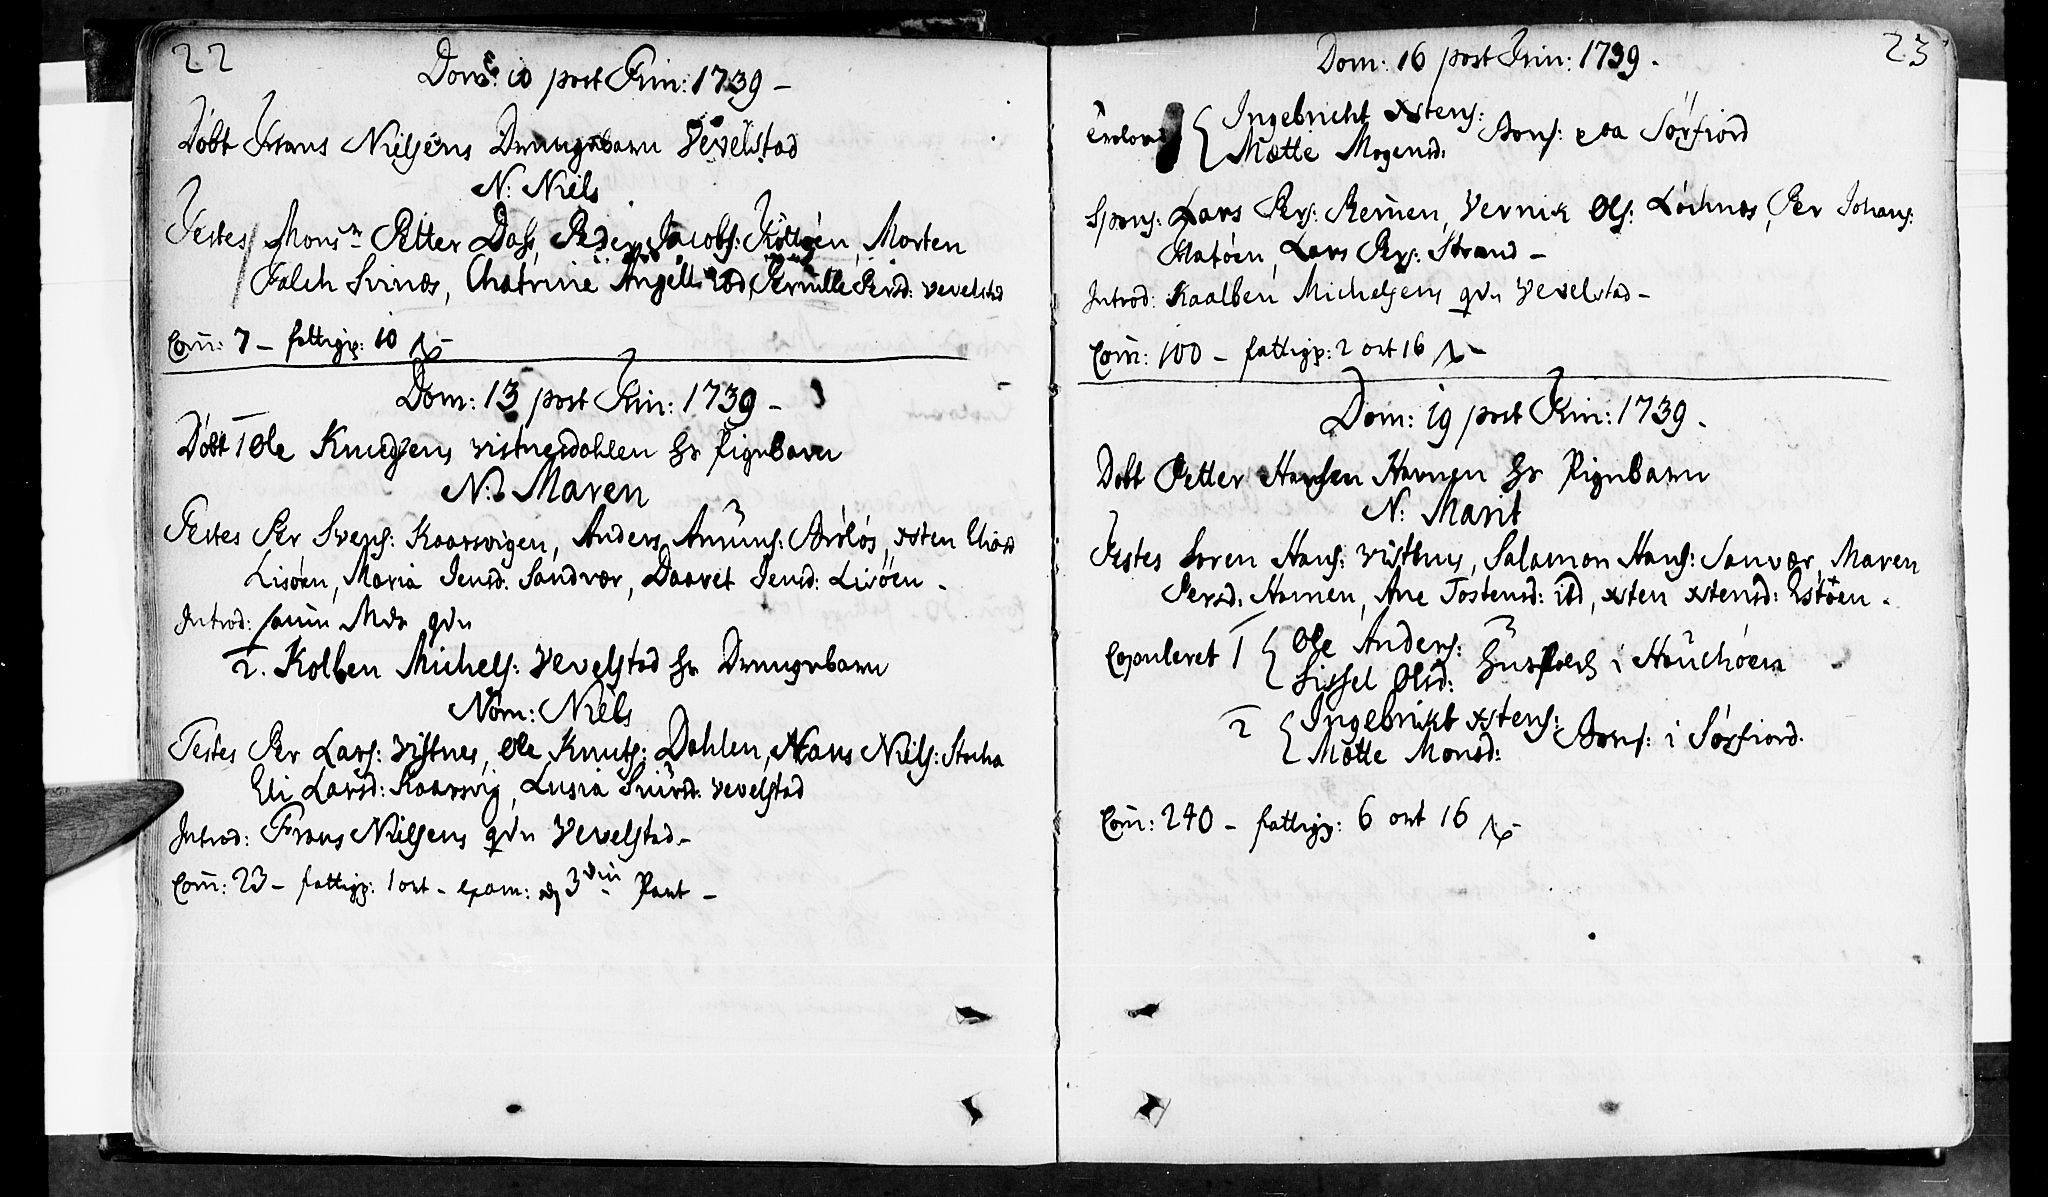 22
Dom: 10 post Trin: 1739 –
Døbt Frans Nielsens Drengebarn Vevelstad
N: Niels
Testes Monsr Petter Dass, Peder Jacobs: Morten
Falch Svinæs, Chatrine Angell ibd, Pernille Persd: Vevelstad
Com: 7 – fattigp: 10 ß –
Dom: 13 post Trin: 1739 –
Døbt 1 Ole Knudsens Vistnesdahlen hs Pigebarn
N: Maren
Testes Per Svens: Kaarsvigen, Anders Amuns: xsten Eliasd
Lisøen, Maria Jensd: Sandvær, Daaret Jensd: Lisøen –
Introd: samme Mds qvn
2. Kolben Michels: Vevelstad hs Drengebarn
Nom: Niels
Testes Per Lars: Vistnes, Ole Knuts: Dahlen, Hans Niels: Stocha
Eli Larsd: Kaarsvig, Lusia Siursd: Vevelstad
Introd: Frans Nielsens qvn Vevelstad –
Com: 23 – fattigp: 1 ort – exam: 3 Part –
23
Dom: 16 post Trin: 1739 –
Trolovet { Ingebricht xstens:
Mætte Mogensd: Bons: paa Sørfiord
Spons: Lars Pers: Remen, Vernik Ols: Lochnæs, Per Johans:
Hatøen, Lars Pers: Strand –
Introd: Kaalben Michelsens qvn Vevelstad –
Com: 100 – fattigp: 2 ort 16 ß –
Dom: 19 post Trin: 1739 –
Døbt Petter Hansen Havnen hs Pigebarn
N: Marit
Testes Soren Hans: Vistnes, Salamon Hans: Sanvær, Maren
Persd: Havnen, Ane Tostensd: ibd, xsten xstensd: Estøen –
Copuleret 1 { Ole Anders:
Sissel Olsd: Husfolch i Høuchøen
2 { Ingebrikt xstens:
Mætte Monsd: Bons: i Sørfiord.
Com: 240 – fattigp: 6 ort 16 ß –